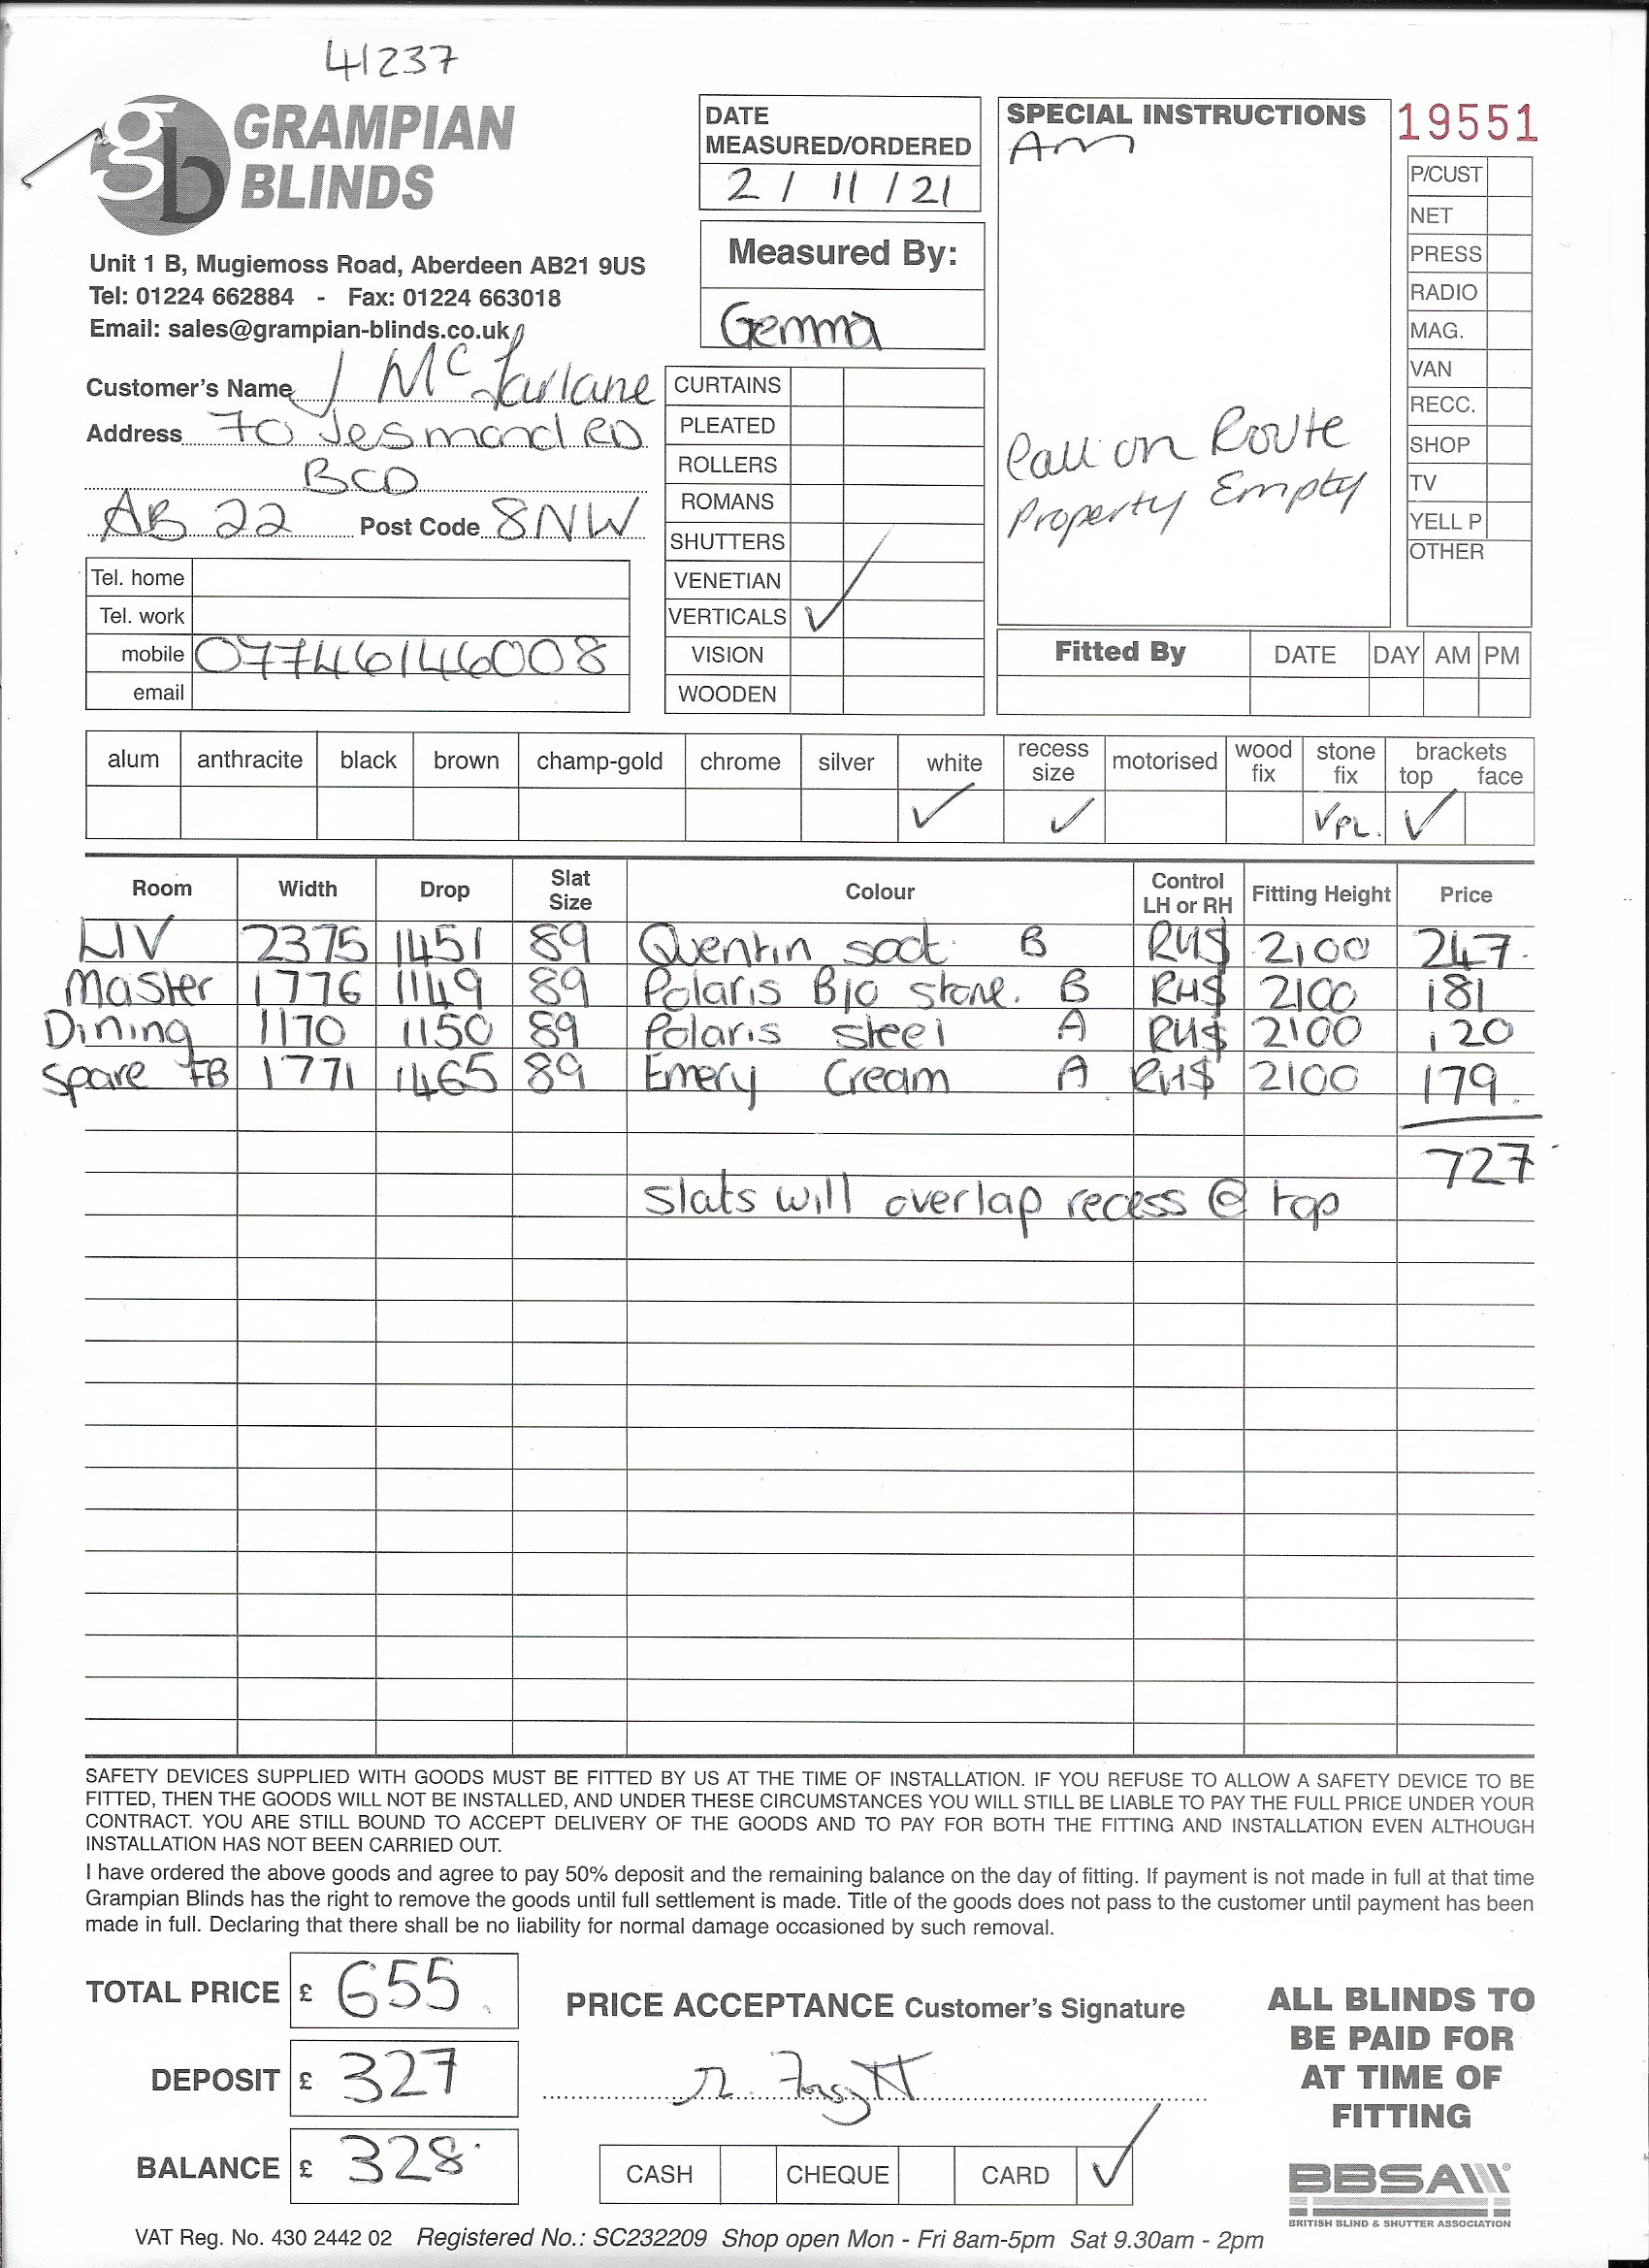 41237
gb GRAMPIAN
BLINDS
Unit 1 B, Mugiemoss Road, Aberdeen AB21 9US
Tel: 01224 662884 - Fax: 01224 663018
Email: sales@grampian-blinds.co.uk
Customer's Name J McFarlane
Address 70 Jesmond RD
BCD
AB 22 Post Code 8NW
Tel. home
Tel. work
mobile 07746146008
email
DATE
MEASURED/ORDERED
2 / 11 / 21
Measured By:
Gemma
CURTAINS
PLEATED
ROLLERS
ROMANS
SHUTTERS
VENETIAN
VERTICALS ✓
VISION
WOODEN
SPECIAL INSTRUCTIONS
Am
Call on Route
Property Empty
19551
P/CUST
NET
PRESS
RADIO
MAG.
VAN
RECC.
SHOP
TV
YELL P
OTHER
Fitted By DATE DAY AM PM
alum anthracite black brown champ-gold chrome silver white recess size motorised wood fix stone fix brackets top face
✓ ✓ ✓PL. ✓
Room Width Drop Slat Size Colour Control LH or RH Fitting Height Price
LIV 2375 1451 89 Quentin soot B RHS 2100 247
Master 1776 1149 89 Polaris B/O stone. B RHS 2100 181
Dining 1170 1150 89 Polaris steel A RHS 2100 120
Spare FB 1771 1465 89 Emery Cream A RHS 2100 179
727
Slats will overlap recess @ top
SAFETY DEVICES SUPPLIED WITH GOODS MUST BE FITTED BY US AT THE TIME OF INSTALLATION. IF YOU REFUSE TO ALLOW A SAFETY DEVICE TO BE
FITTED, THEN THE GOODS WILL NOT BE INSTALLED, AND UNDER THESE CIRCUMSTANCES YOU WILL STILL BE LIABLE TO PAY THE FULL PRICE UNDER YOUR
CONTRACT. YOU ARE STILL BOUND TO ACCEPT DELIVERY OF THE GOODS AND TO PAY FOR BOTH THE FITTING AND INSTALLATION EVEN ALTHOUGH
INSTALLATION HAS NOT BEEN CARRIED OUT.
I have ordered the above goods and agree to pay 50% deposit and the remaining balance on the day of fitting. If payment is not made in full at that time
Grampian Blinds has the right to remove the goods until full settlement is made. Title of the goods does not pass to the customer until payment has been
made in full. Declaring that there shall be no liability for normal damage occasioned by such removal.
TOTAL PRICE £ 655
DEPOSIT £ 327
BALANCE £ 328
PRICE ACCEPTANCE Customer's Signature
CASH CHEQUE CARD ✓
ALL BLINDS TO
BE PAID FOR
AT TIME OF
FITTING
BBSA
BRITISH BLIND & SHUTTER ASSOCIATION
VAT Reg. No. 430 2442 02 Registered No.: SC232209 Shop open Mon - Fri 8am-5pm Sat 9.30am - 2pm